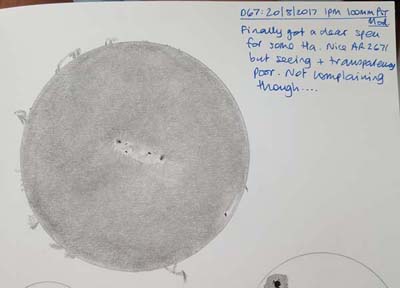 D67: 20/8/2017 1pm 100mm PST
Mod
Finally got a clear spell
for some Ha. Nice AR2671
but seeing + transparency
poor. Not complaining
though....